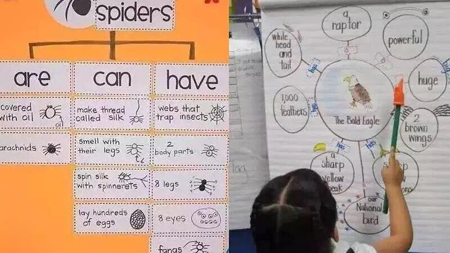 spiders
are
can
have
covered
with oil
arachnids
make thread
called silk
smell with
their legs
spin silk
with spinnerets
lay hundreds
of eggs
webs that
trap insects
2
body parts
8 legs
8 eyes
fangs
a
raptor
powerful
white
head
and
tail
huge
7,000
feathers
The Bald Eagle
2
brown
wings
a
sharp
yellow
beak
our
National
bird